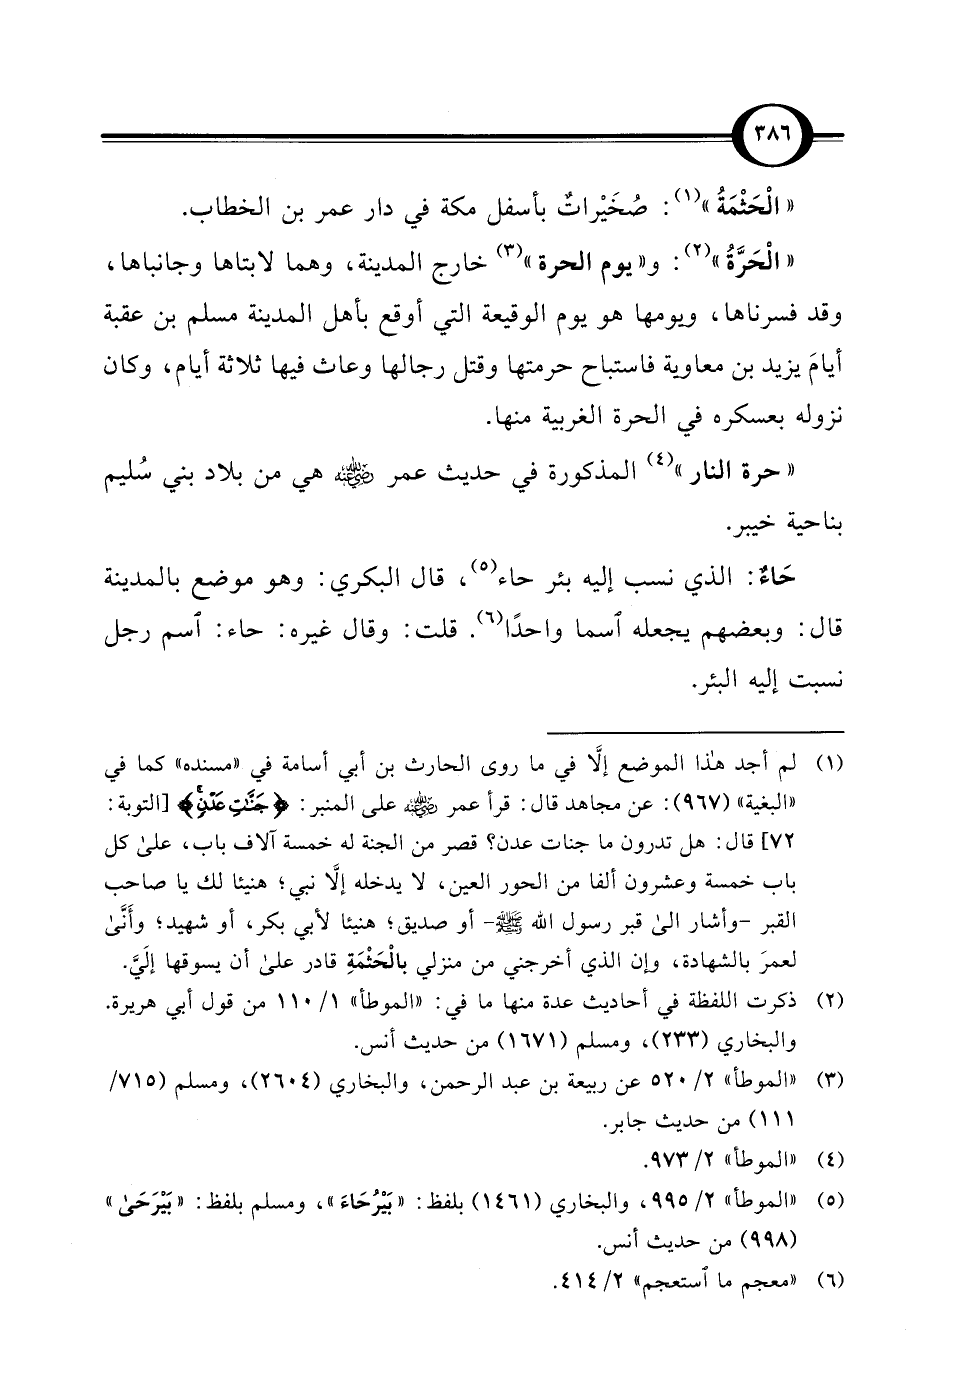 ٣٨٦
« الْحَثْمَةُ »(١): صُخَيْراتٌ بأسفل مكة في دار عمر بن الخطاب.
« الْحَرَّةُ »(٢): و« يوم الحرة »(٣) خارج المدينة، وهما لابتاها وجانباها،
وقد فسرناها، ويومها هو يوم الوقيعة التي أوقع بأهل المدينة مسلم بن عقبة
أيامَ يزيد بن معاوية فاستباح حرمتها وقتل رجالها وعاث فيها ثلاثة أيام، وكان
نزوله بعسكره في الحرة الغربية منها.
« حرة النار »(٤) المذكورة في حديث عمر رضي الله عنه هي من بلاد بني سُليم
بناحية خيبر.
حَاءٌ: الذي نسب إليه بئر حاء(٥)، قال البكري: وهو موضع بالمدينة
قال: وبعضهم يجعله ٱسما واحدًا(٦). قلت: وقال غيره: حاء: ٱسم رجل
نسبت إليه البئر.
(١) لم أجد هذا الموضع إلَّا في ما روى الحارث بن أبي أسامة في «مسنده» كما في
«البغية» (٩٦٧): عن مجاهد قال: قرأ عمر رضي الله عنه على المنبر: ﴿جَنَّٰتِ عَدۡنٖۚ﴾ [التوبة:
٧٢] قال: هل تدرون ما جنات عدن؟ قصر من الجنة له خمسة آلاف باب، علىٰ كل
باب خمسة وعشرون ألفا من الحور العين، لا يدخله إلَّا نبي؛ هنيئا لك يا صاحب
القبر -وأشار الىٰ قبر رسول الله ﷺ- أو صديق؛ هنيئا لأبي بكر، أو شهيد؛ وأَنَّىٰ
لعمرَ بالشهادة، وإن الذي أخرجني من منزلي بالْحَثْمَةِ قادر علىٰ أن يسوقها إلَيَّ.
(٢) ذكرت اللفظة في أحاديث عدة منها ما في: «الموطأ» ١/ ١١٠ من قول أبي هريرة.
والبخاري (٢٣٣)، ومسلم (١٦٧١) من حديث أنس.
(٣) «الموطأ» ٢/ ٥٢٠ عن ربيعة بن عبد الرحمن، والبخاري (٢٦٠٤)، ومسلم (٧١٥/
١١١) من حديث جابر.
(٤) «الموطأ» ٢/ ٩٧٣.
(٥) «الموطأ» ٢/ ٩٩٥، والبخاري (١٤٦١) بلفظ: « بَيْرُحَاءَ »، ومسلم بلفظ: « بَيْرَحَىٰ »
(٩٩٨) من حديث أنس.
(٦) «معجم ما ٱستعجم» ٢/ ٤١٤.